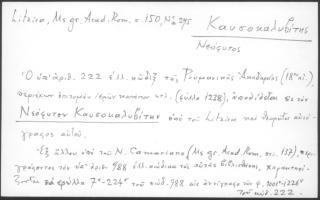 Litzica, Ms gr. Acad. Rom. σ. 150, No 295
Καυσοκαλυβίτης
Νεόφυτος
Ὁ ὑπ' ἀριθ. 222 ἑλλ. κῶδιξ τῆς Ρουμανικῆς Ἀκαδημίας (18ου αἰ.),
περιέχων ἐπιτομὴν ἱερῶν κανόνων κτλ. (φύλλα 1228), ἀποδίδεται εἰς τὸν
Νεόφυτον Καυσοκαλυβίτην ὑπὸ τοῦ Litzica καὶ θεωρεῖται αὐτό-
γραφος αὐτοῦ.
Ἐξ ἄλλου ὑπὸ τοῦ N. Camariano (Ms gr. Acad. Rom. σελ. 137), περι-
γράφοντος τὸν ὑπ' ἀριθ. 988 ἑλλ. κώδικα τῆς αὐτῆς Βιβλιοθήκης, χαρακτηρί-
ζονται τὰ φύλλα 7α-224α τοῦ κώδ. 988 ὡς ἀντίγραφα τῶν φ. 1001α-1226α
τοῦ κώδ. 222.